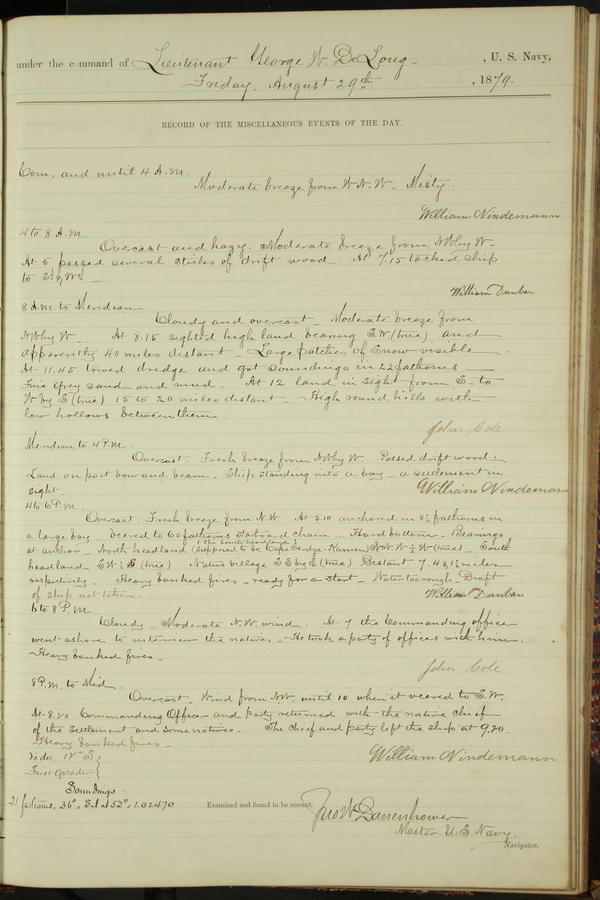 under the command of Lieutenant George W. De Long, U. S. Navy,
Friday, August 29th, 1879.
RECORD OF THE MISCELLANEOUS EVENTS OF THE DAY.
Com. and until 4 A.M.
Moderate breeze from W.N.W. Misty.
William Nindemann
4 to 8 A.M.
Overcast and hazy. Moderate breeze from NW by W.
At 5 passed several sticks of drift wood. At 7.15 tacked ship
to
William Dunbar
8 A.M. to Meridian.
Cloudy and overcast. Moderate breeze from
NW by W. At 8.15 sighted high land bearing S.W. (true) and
apparently 40 miles distant. Large patches of snow visible.
At 11.45 towed dredge and got soundings in 22 fathoms
Fine grey sand and mud. At 12 land in sight from S. to
W by S (true) 15 to 20 miles distant. High round hills with
low hollows between them.
John Cole
Meridian to 4 P.M.
Overcast. Fresh breeze from NW by W. Passed drift wood.
Land on port bow and beam. Ship standing into a bay - a settlement in
sight.
William Nindemann
4 to 6 P.M.
Overcast. Fresh breeze from N.W. At 5.10 anchored in 8½ fathoms in
a large bay. Veered to 60 fathoms starboard chain. Hard bottom. Bearings
at anchor North headland (supposed to be Cape Serdze Kamen) (true) South
headland (true) Native village (true) Distant 7, 4, 1½ miles
respectively. Heavy banked fires - ready for a start. Water too rough. Draft
of ship not taken.
William Dunbar
6 to 8 P.M.
Cloudy. Moderate N.W. wind. At 7 the Commanding officer
went ashore to interview the natives. He took a party of officers with him.
Heavy banked fires.
John Cole
8 P.M. to Mid.
Overcast. Wind from NW. until 10 when it veered to S.W.
At 8.20 Commanding Officer and party returned with the native chief
of the settlement and some natives. The chief and party left the ship at 9.20.
Heavy banked fires.
William Nindemann
dec. 12° S
First quarter
Soundings
21 fathoms, 36°, at 52°, 1.02470
Examined and found to be correct.
Jno W Danenhower
Master. U.S. Navy.
Navigator.